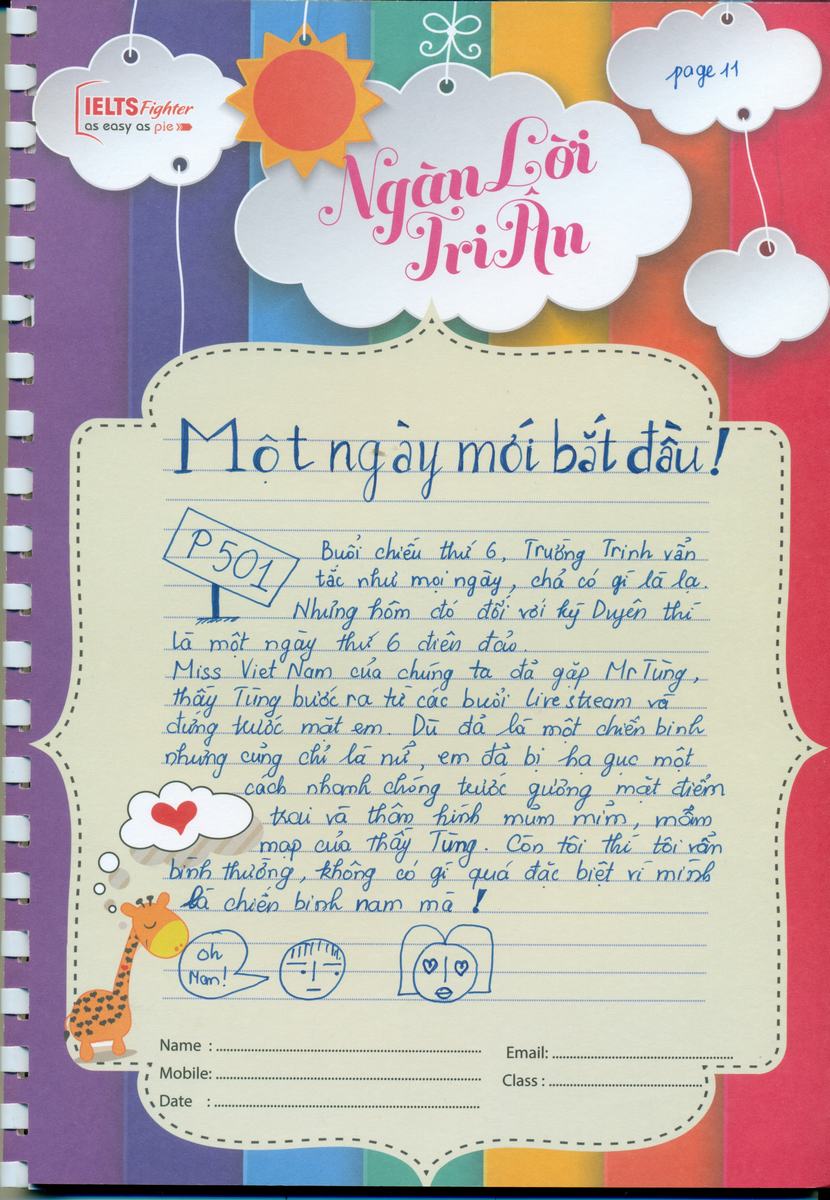 IELTS Fighter
as easy as pie
page 11
Ngàn Lời
Tri Ân
Một ngày mới bắt đầu!
P501
Buổi chiều thứ 6, Trường Trinh vẫn
tắc như mọi ngày, chả có gì là lạ.
Nhưng hôm đó đối với kỳ Duyên thì
là một ngày thứ 6 điên đảo.
Miss Viet Nam của chúng ta đã gặp Mr Tùng,
thầy Tùng bước ra từ các buổi Live stream và
đứng trước mặt em. Dù đã là một chiến binh
nhưng cũng chỉ là nữ, em đã bị hạ gục một
cách nhanh chóng trước gương mặt điểm
trai và thân hình mũm mĩm, mầm
mạp của thầy Tùng. Còn tôi thì tôi vẫn
bình thường, không có gì quá đặc biệt vì mình
là chiến binh nam mà!
Oh
Nam!
Name :
Email:
Mobile:
Class :
Date :